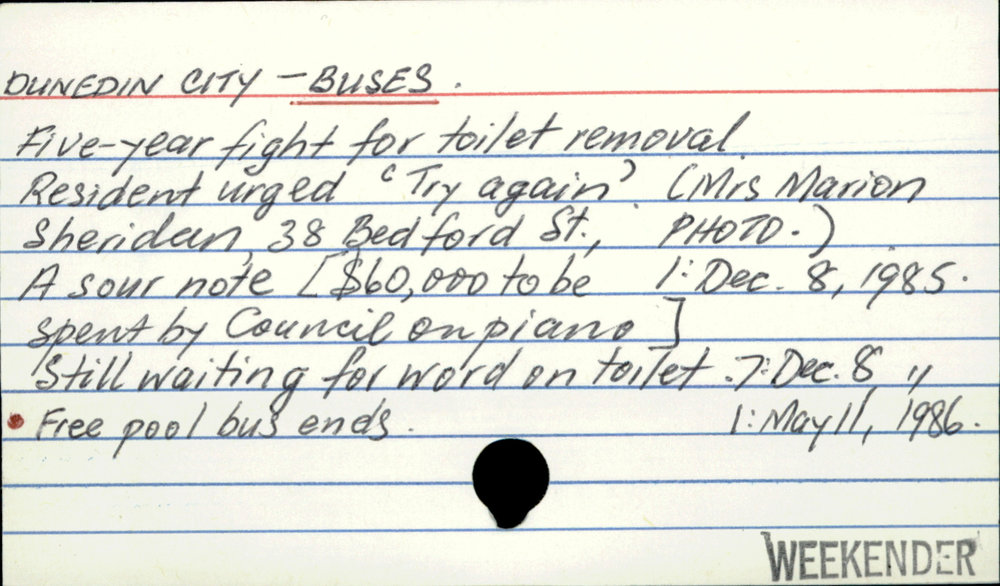 DUNEDIN CITY - BUSES.
Five-year fight for toilet removal.
Resident urged 'Try again'. (Mrs Marion
Sheridan, 38 Bedford St., PHOTO.)
A sour note [$60,000 to be 1: Dec. 8, 1985.
spent by Council on piano]
Still waiting for word on toilet. 7: Dec. 8 "
• Free pool bus ends. 1: May 11, 1986.
WEEKENDER